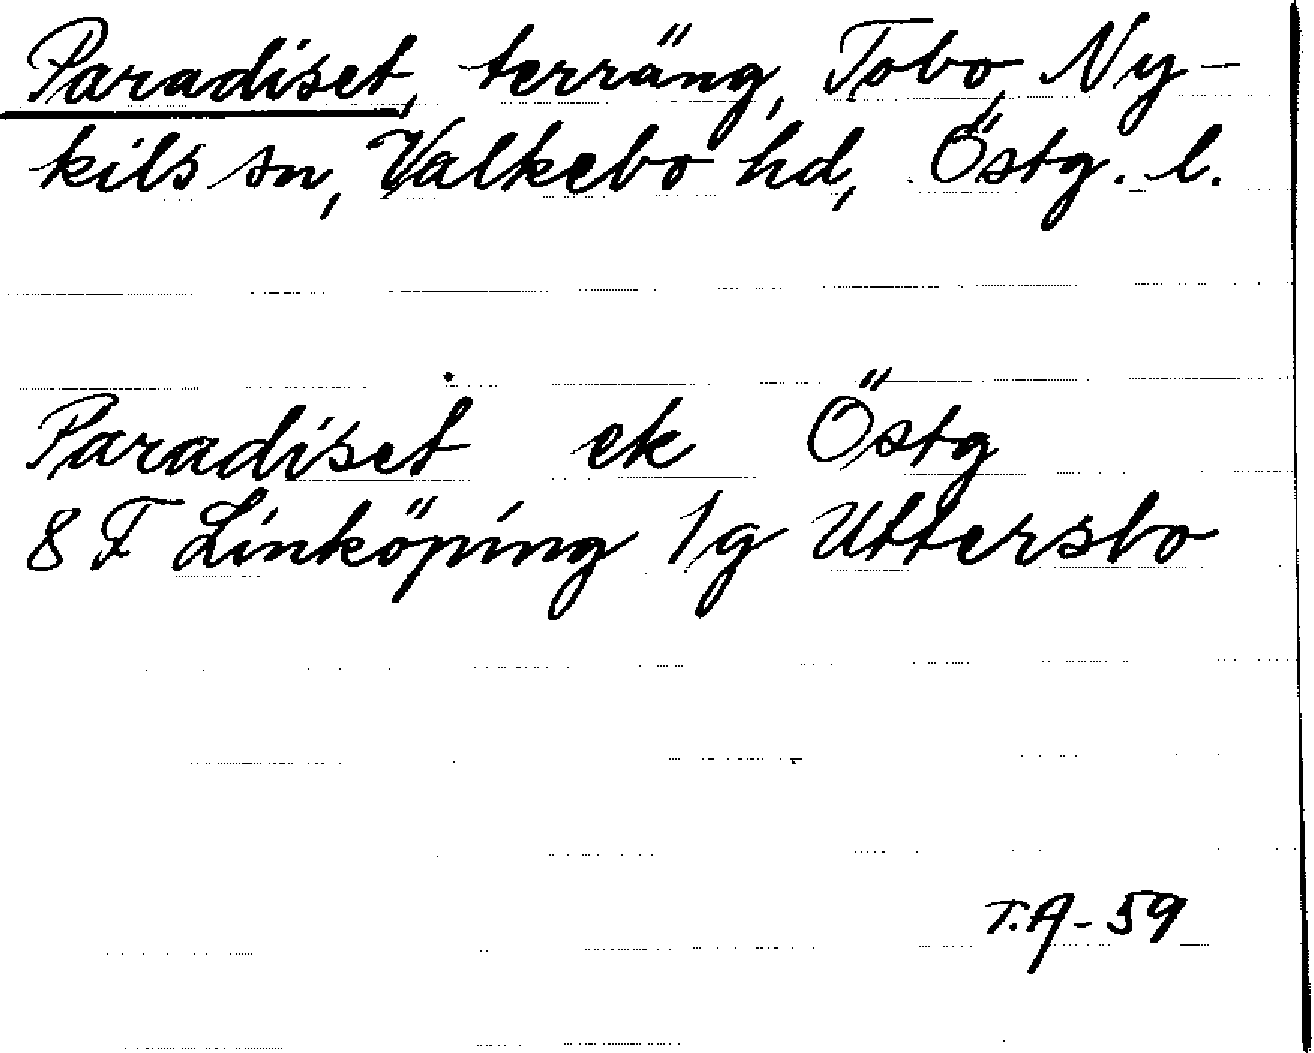 Paradiset, terräng, Tobo, Ny-
kils sn, Valkebo hd, Östg. l.
Paradiset ek Östg
8 F Linköping 1g Uttersbo
T.A-59